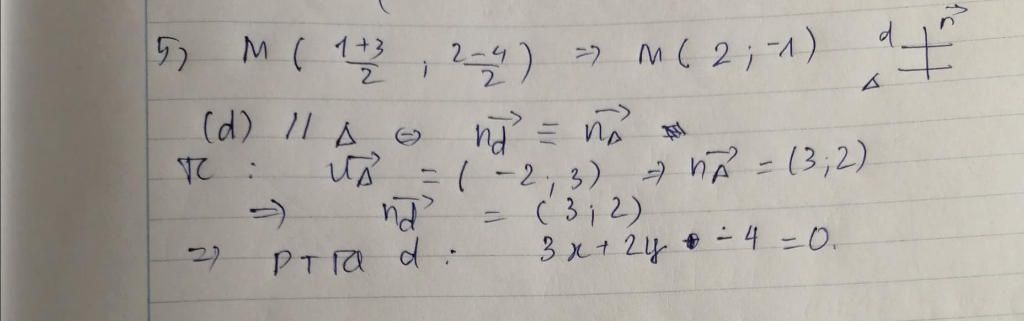 5) M ( \frac{1+3}{2} ; \frac{2-4}{2} ) => M ( 2 ; -1 ) d \vec{n} Δ
(d) // Δ ⇔ \vec{n_d} ≡ \vec{n_Δ}
TC : \vec{u_Δ} = ( -2 ; 3 ) => \vec{n_Δ} = (3 ; 2)
=> \vec{n_d} = (3 ; 2)
=> PTTQ d : 3x + 2y - 4 = 0.